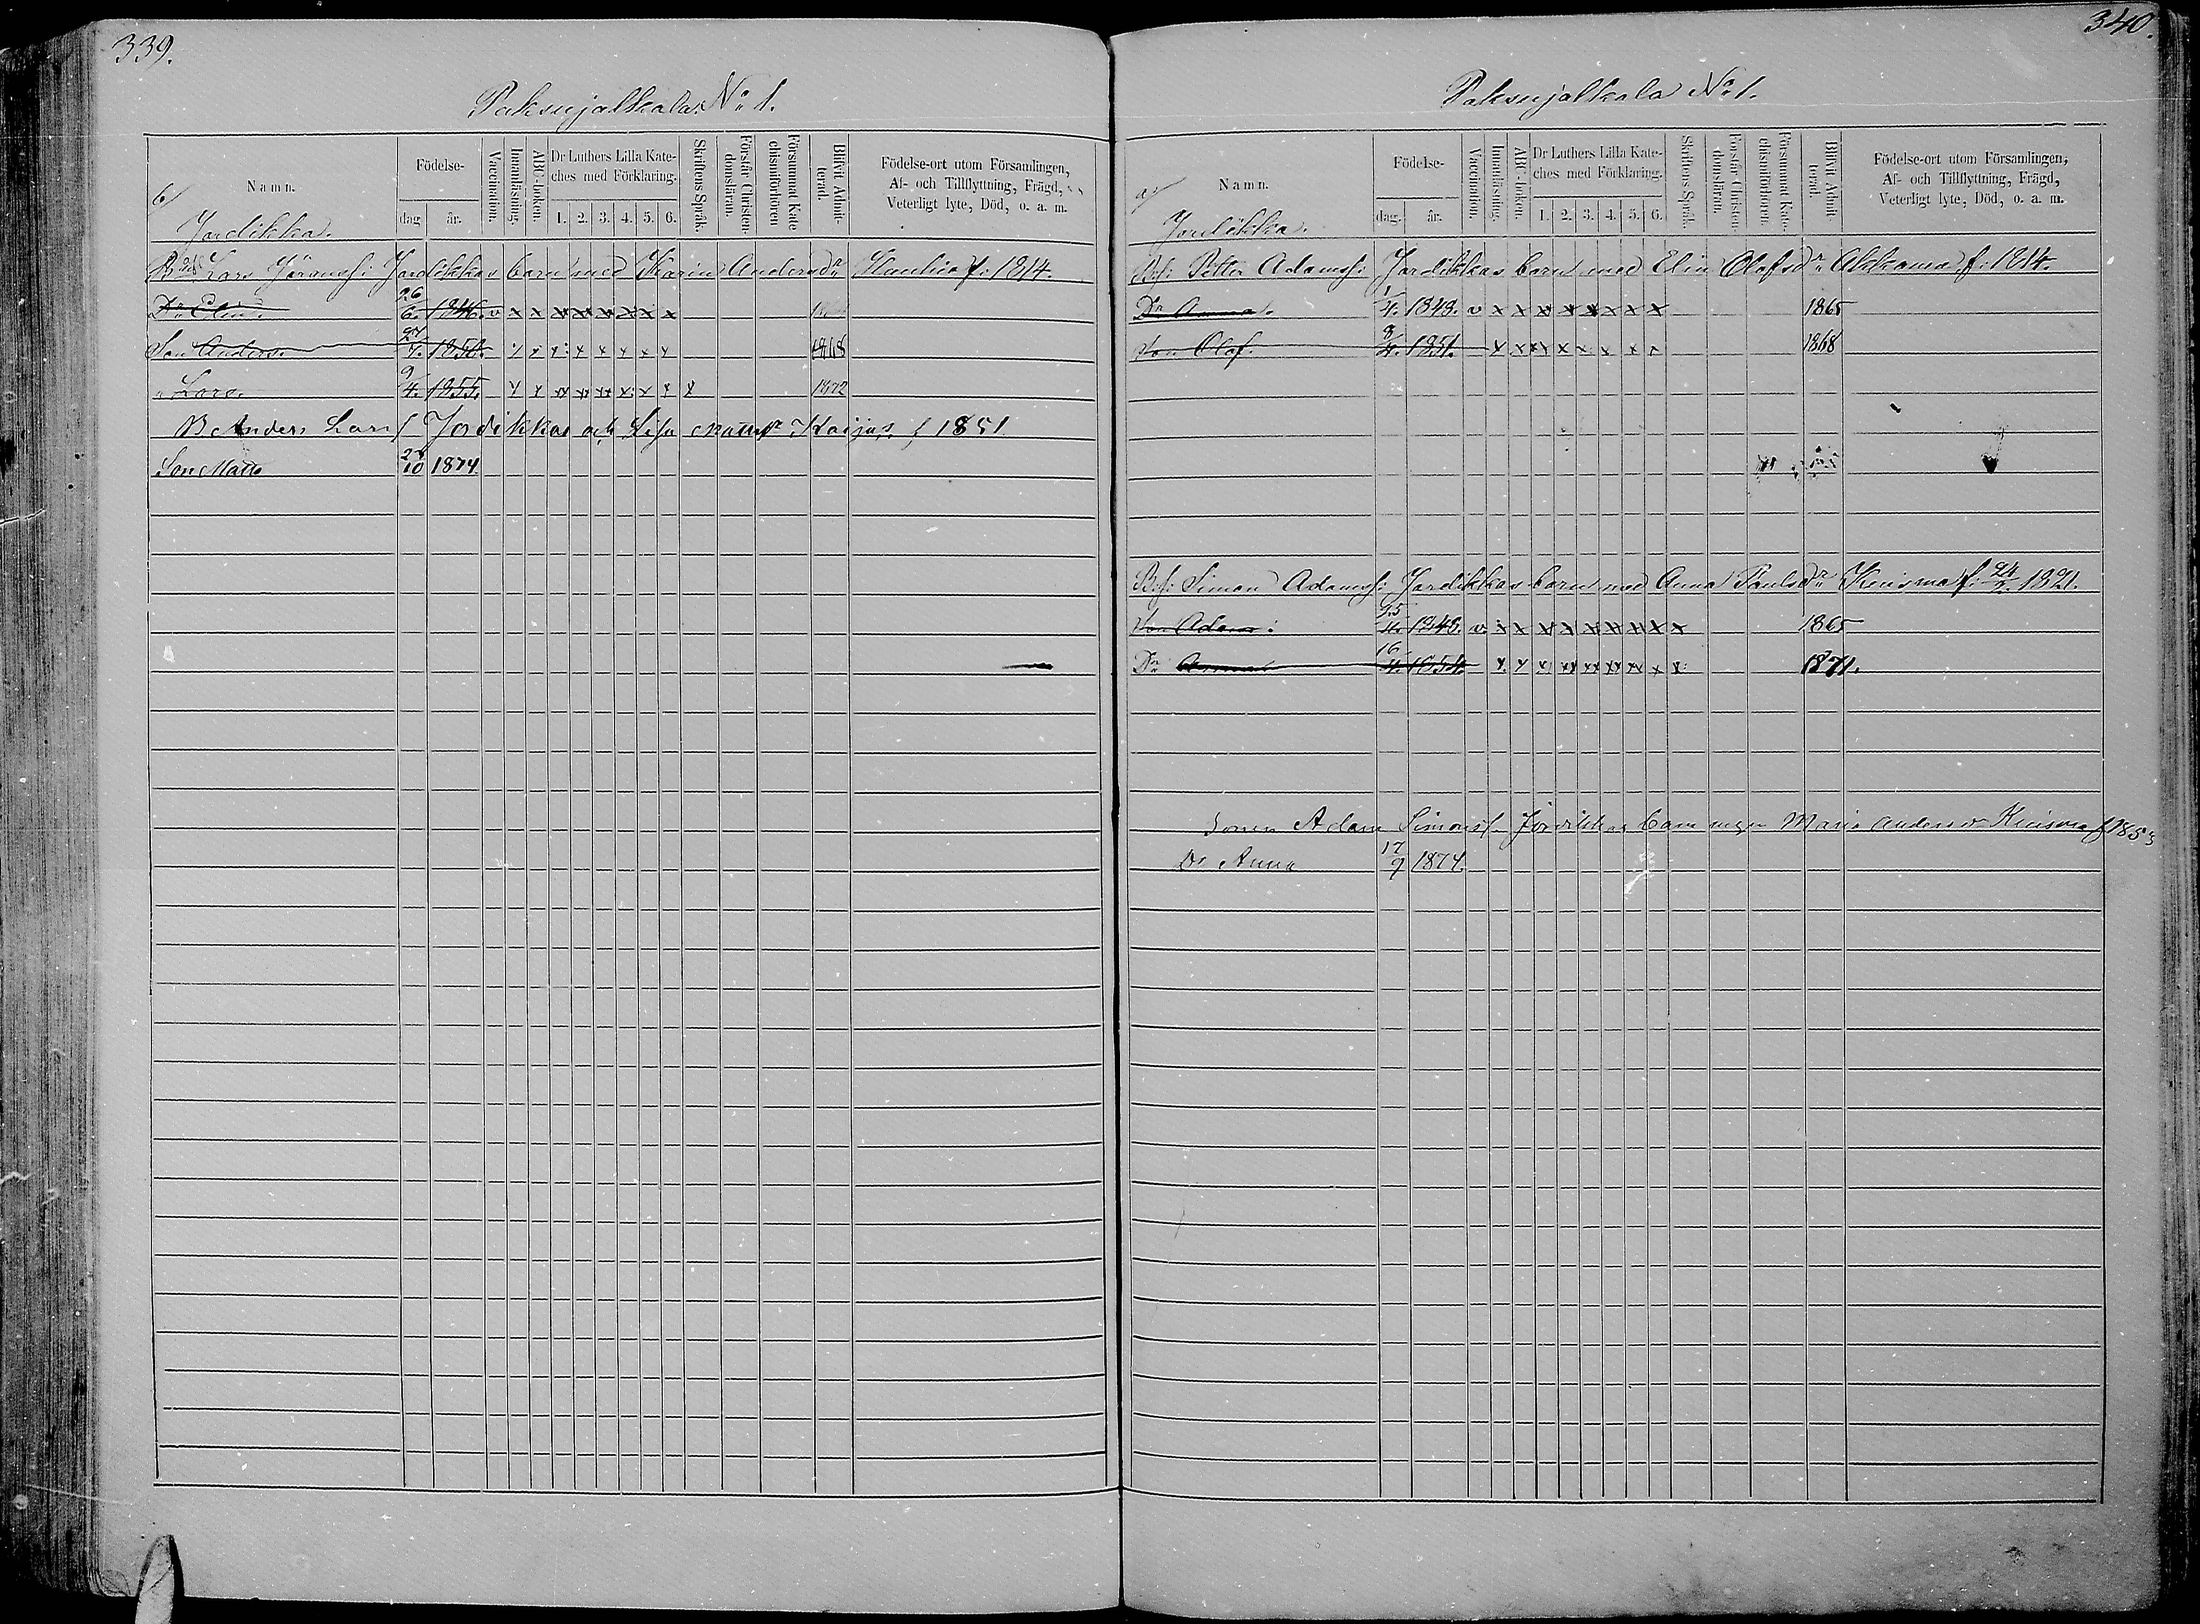 339.
Paksujalkala. No 1.
b/
Namn.
Födelse-
dag
år.
Vaccination.
Innanläsning.
ABC-boken.
Dr Luthers Lilla Kate-
ches med Förklaring.
1. 2. 3. 4. 5. 6.
Skriftens Språk.
Förstår Christen-
domsläran.
Försummat Kate
chismiförhören
Blifvit Admit-
terad.
Födelse-ort utom Församlingen,
Af- och Tillflyttning, Frägd,
Veterligt lyte, Död, o. a. m.
Jordikka.
Lars Göranss: Jordikkas barn med Karin Andersdr f: 1814.
Dr Elin. 26/6. 1846. v x x x x x x x x
Son Anders. 27/7. 1850. x x x x x x x x 1868
" Lars. 9/4. 1855. x x x x x x x x x 1872
B Anders Larss Jordikkas och Lisa Mattsdr Kaijas f 1851
Son Matts 28/10 1874
340.
Paksujalkala No 1.
a/
Namn.
Födelse-
dag.
år.
Vaccination.
Innanläsning.
ABC-boken.
Dr Luthers Lilla Kate-
ches med Förklaring.
1. 2. 3. 4. 5. 6.
Skriftens Språk.
Förstår Christen-
domsläran.
Försummat Kate-
chismiförhören.
Blifvit Admit-
terad.
Födelse-ort utom Församlingen,
Af- och Tillflyttning, Frägd,
Veterligt lyte, Död, o. a. m.
Jordikka.
Bs: Petter Adamss: Jordikkas barn med Elin Olofsdr Akkana f: 1814.
Dr Anna. 1/4. 1848. v x x x x x x x x 1865
Son Olof. 8/4. 1851. x x x x x x x x 1868
Bs: Simon Adamss: Jordikkas barn med Anna Paulsdr Kuisma f: 24/2. 1821.
Son Adam: 25/11. 1848. v. x x x x x x x x x 1865
Dr Anna 16/4. 1854. x x x x x x x x x 1871.
Sonen Adam Simonss. Jordikkas barn med Maria Andersdr Kuisma f 1853
Dr Anna 17/9 1874.